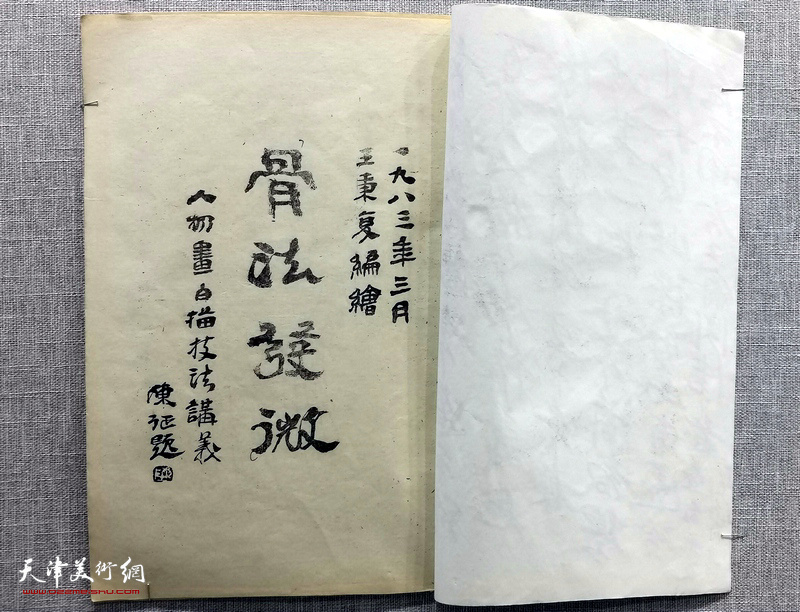 一九八三年三月
王秉复編繪
骨法發微
人物畫白描技法講義
陳征題
天津美術網
www.022meishu.com